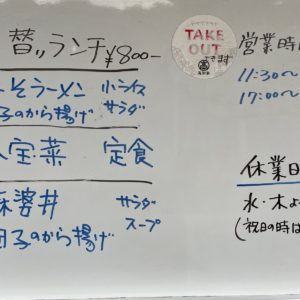 替りランチ ¥800-
そラーメン 小ライス
子のから揚げ サラダ
宝・菜 定食
麻婆丼 サラダ
子のから揚げ スープ
TAKE
OUT
できます
営業時
11:30〜
17:00〜
休業日
水・木よ
(祝日の時は